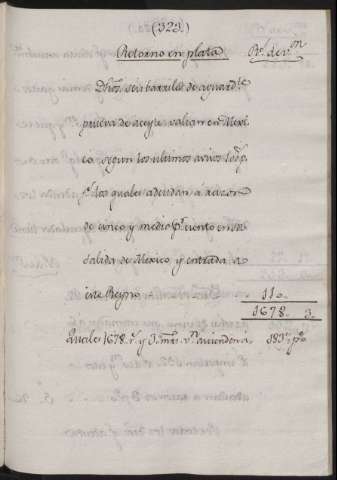 (323)
Retorno en plata Rs. devn
Dhos. seis barriles de aguardte
prueva de aceyte valian en Mexi
co segun los ultimos avisos 100 ps
fs. los quales adeudan à razon
de cinco y medio pr. ciento en su
salida de Mexico y entrada a
este Reyno 110.
1678. 3.
Queles 1678. rs. y 3. mrs. vn. ascienden a